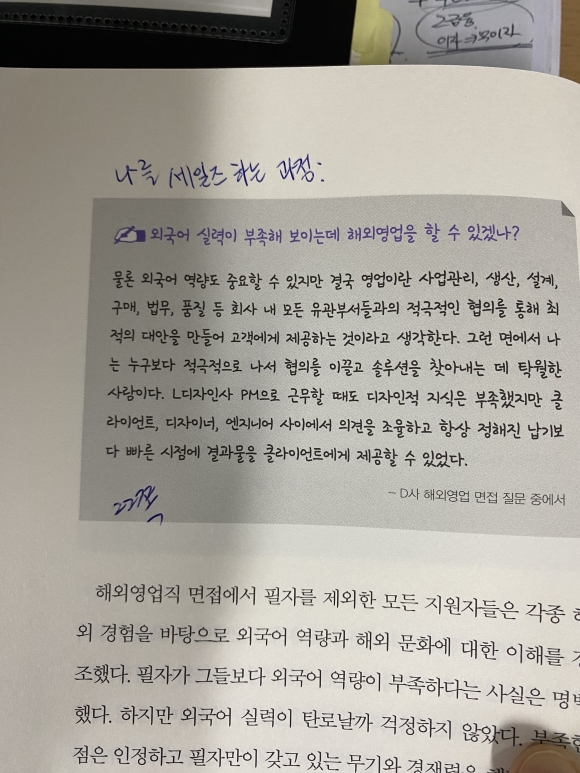 2금융
이자 ⇒ 복이자
나를 세일즈 하는 과정:
외국어 실력이 부족해 보이는데 해외영업을 할 수 있겠나?
물론 외국어 역량도 중요할 수 있지만 결국 영업이란 사업관리, 생산, 설계,
구매, 법무, 품질 등 회사 내 모든 유관부서들과의 적극적인 협의를 통해 최
적의 대안을 만들어 고객에게 제공하는 것이라고 생각한다. 그런 면에서 나
는 누구보다 적극적으로 나서 협의를 이끌고 솔루션을 찾아내는 데 탁월한
사람이다. L디자인사 PM으로 근무할 때도 디자인적 지식은 부족했지만 클
라이언트, 디자이너, 엔지니어 사이에서 의견을 조율하고 항상 정해진 납기보
다 빠른 시점에 결과물을 클라이언트에게 제공할 수 있었다.
– D사 해외영업 면접 질문 중에서
해외영업직 면접에서 필자를 제외한 모든 지원자들은 각종
외 경험을 바탕으로 외국어 역량과 해외 문화에 대한 이해를
조했다. 필자가 그들보다 외국어 역량이 부족하다는 사실은 명백
했다. 하지만 외국어 실력이 탄로날까 걱정하지 않았다. 부족한
점은 인정하고 필자만이 갖고 있는 무기와 경쟁력으